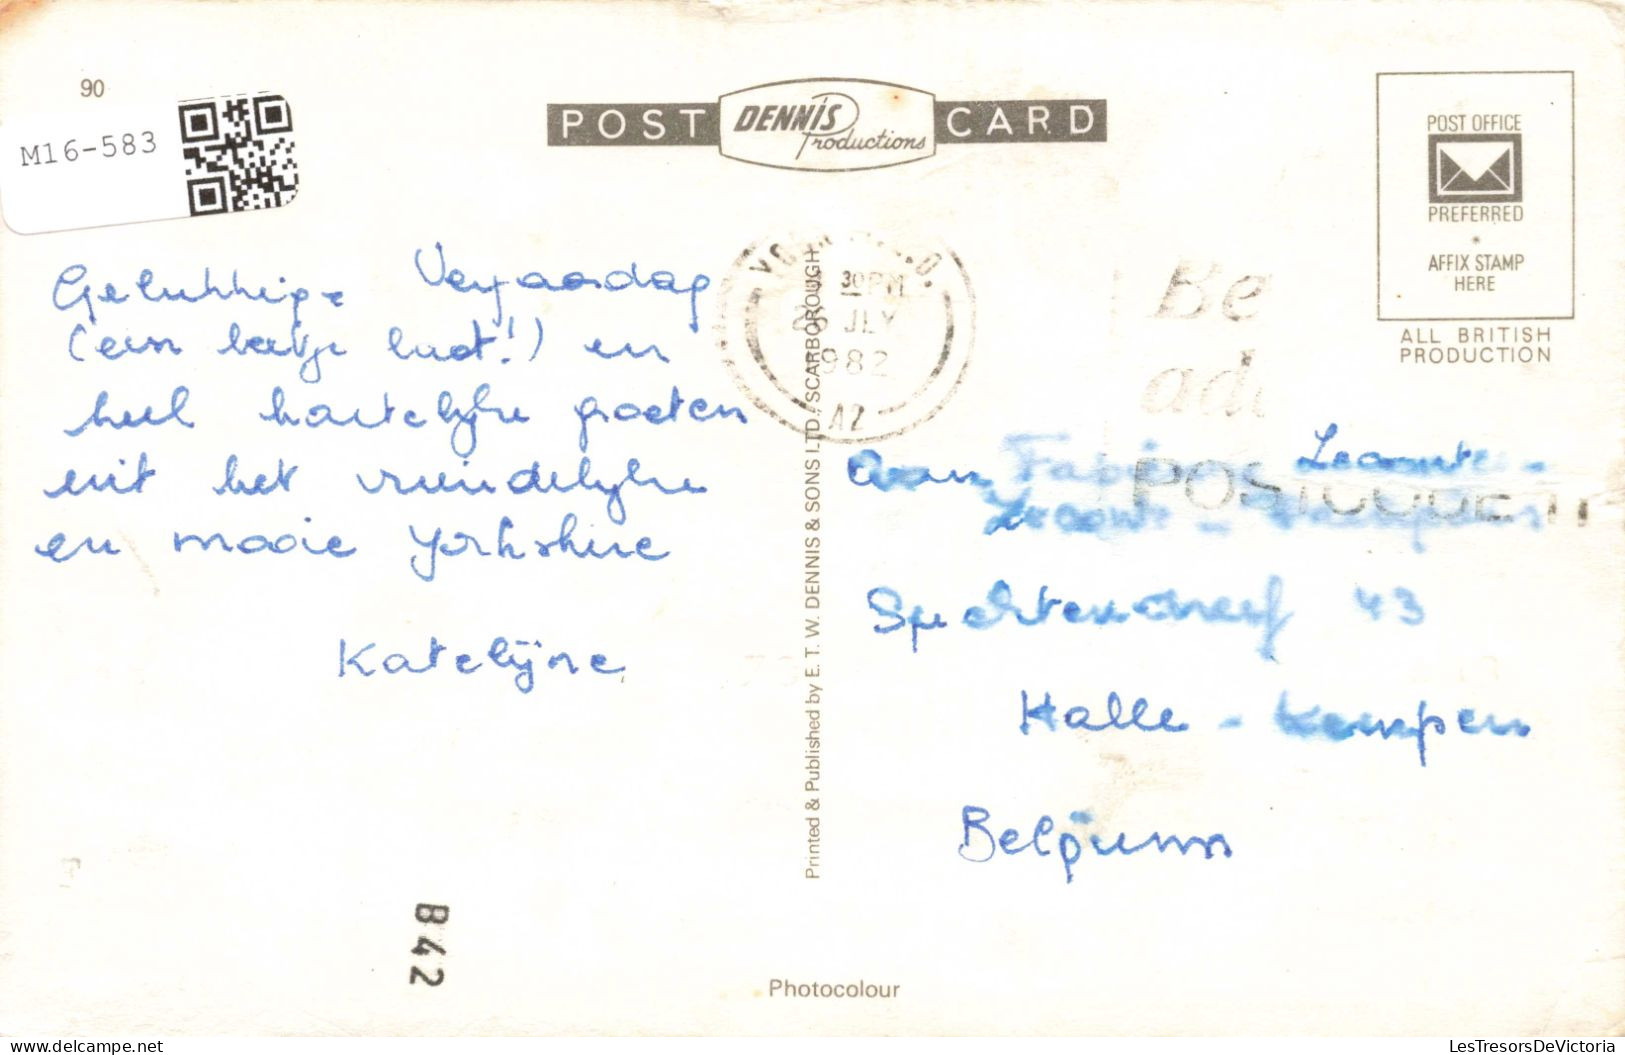 90
M16-583
POST DENNIS Productions CARD
POST OFFICE
PREFERRED
AFFIX STAMP
HERE
ALL BRITISH
PRODUCTION
30PM
JLY
982
AZ
Be
ad
POSTCODE
Gelukkige Verjaardag
(een beetje laat!) en
heel hartelijke groeten
uit het vriendelijke
en mooie Yorkshire
Katelijne
aan
Spechtendreef 43
Halle - Kempen
Belgium
Printed & Published by E. T. W. DENNIS & SONS LTD., SCARBOROUGH
B42
Photocolour
LesTresorsDeVictoria.com